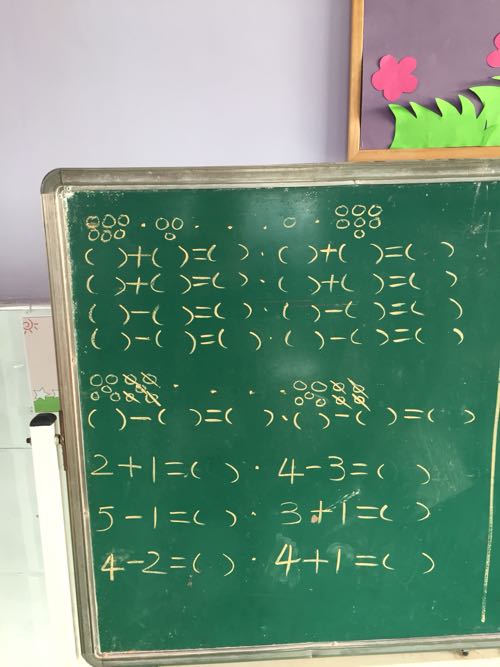 ( )+( )=( ) · ( )+( )=( )
( )+( )=( ) · ( )+( )=( )
( )-( )=( ) · ( )-( )=( )
( )-( )=( ) · ( )-( )=( )
( )-( )=( ) · ( )-( )=( )
2+1=( ) · 4-3=( )
5-1=( ) · 3+1=( )
4-2=( ) · 4+1=( )